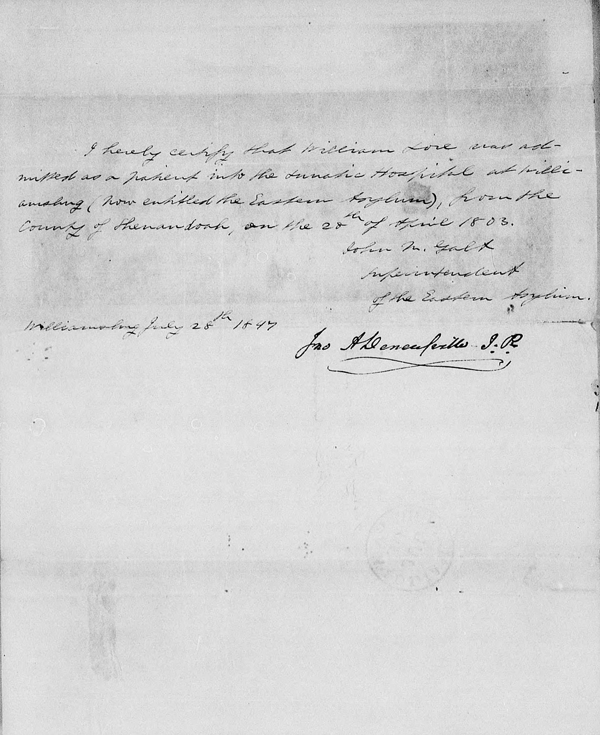 I hereby certify that William Love was ad-
mitted as a patient into the Lunatic Hospital at Willi-
amsburg (now entitled the Eastern Asylum), from the
County of Shenandoah, on the 28th of April 1803.
John M. Galt
Superintendent
of the Eastern Asylum.
Williamsburg July 28th 1847
Jno A Deneufville J. P.